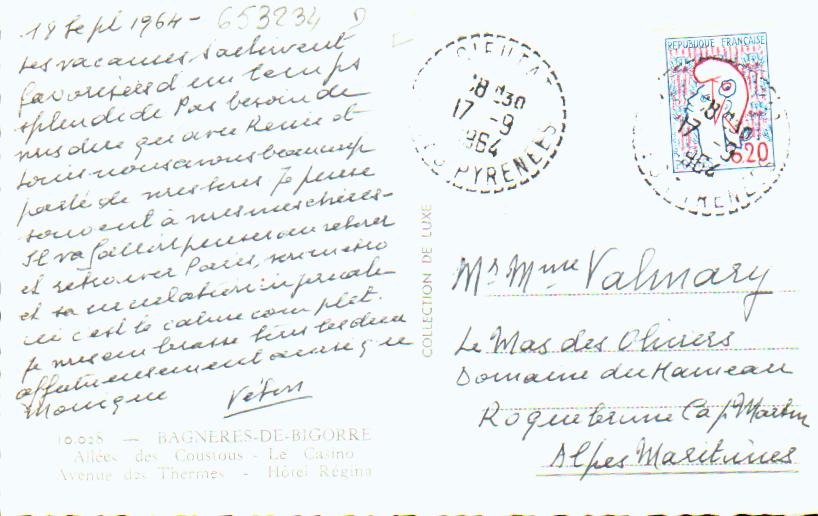 18 Sept 1964 - 653234
Les vacances s'achèvent
favorisées d'un temps
splendide Pas besoin de
vous dire qu'avec Renée et
Louis nous avons beaucoup
parlé de vous tous Je pense
souvent à vous mes chères -
Il va falloir penser au retour
et retrouver Paris, son métro
et sa circulation infernale
ici c'est le calme complet.
Je vous embrasse tous les deux
affectueusement ainsi que
Monique
10.028 — BAGNERES-DE-BIGORRE
Allées des Coustous - Le Casino
Avenue des Thermes - Hôtel Régina
COLLECTION DE LUXE
CIEUTAT
18 H 30
17 -9
1964
PYRENEES
REPUBLIQUE FRANÇAISE
0.20
18 30
17 -9
1964
PYRENEES
Mr Mme Valmary
Le Mas des Oliviers
Domaine du Hameau
Roquebrune Cap Martin
Alpes Maritimes